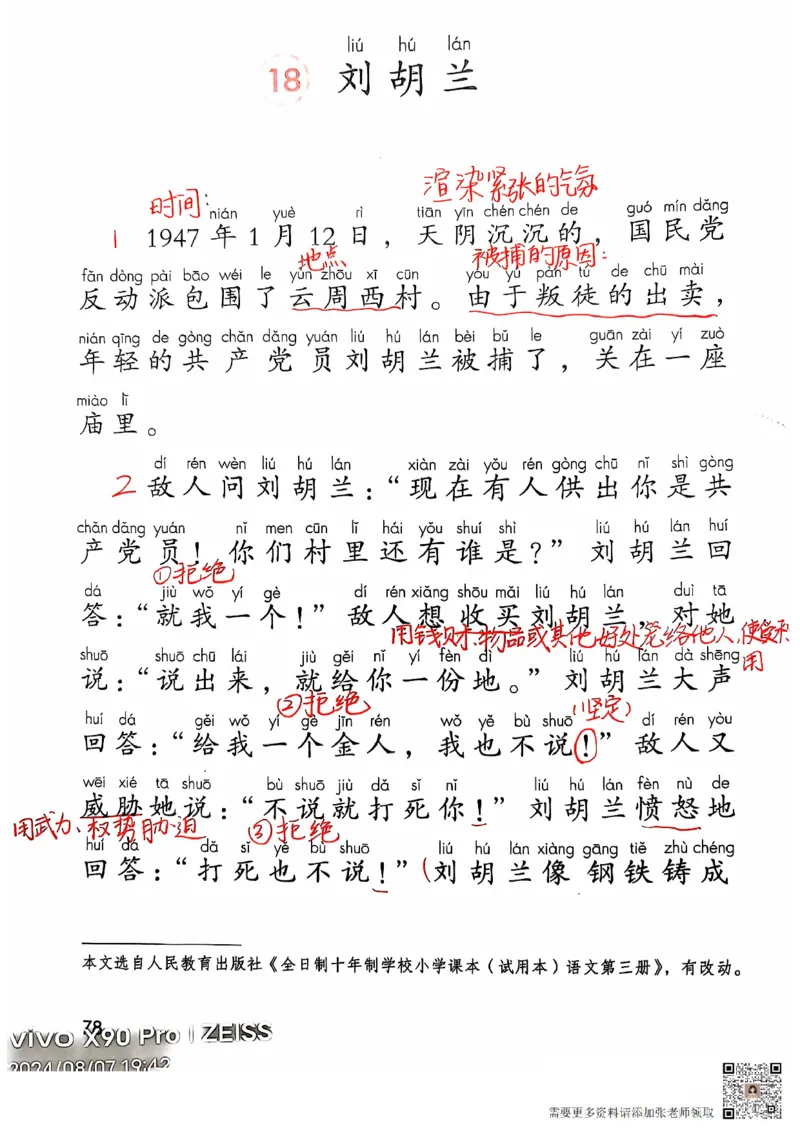 liú hú lán
18 刘胡兰
时间：
渲染紧张的气氛
nián yuè rì tiān yīn chén chén de guó mín dǎng
1 1947年1月12日，天阴沉沉的，国民党
地点
被捕的原因：
fǎn dòng pài bāo wéi le yún zhōu xī cūn yóu yú pàn tú de chū mài
反动派包围了云周西村。由于叛徒的出卖，
nián qīng de gòng chǎn dǎng yuán liú hú lán bèi bǔ le guān zài yí zuò
年轻的共产党员刘胡兰被捕了，关在一座
miào lǐ
庙里。
dí rén wèn liú hú lán xiàn zài yǒu rén gòng chū nǐ shì gòng
2 敌人问刘胡兰：“现在有人供出你是共
chǎn dǎng yuán nǐ men cūn lǐ hái yǒu shuí shì liú hú lán huí
产党员！你们村里还有谁是？”刘胡兰回
①拒绝
dá jiù wǒ yí gè dí rén xiǎng shōu mǎi liú hú lán duì tā
答：“就我一个！”敌人想收买刘胡兰，对她
用钱财物品或其他好处笼络他人，使受利用
shuō shuō chū lái jiù gěi nǐ yí fèn dì liú hú lán dà shēng
说：“说出来，就给你一份地。”刘胡兰大声
②拒绝
（坚定）
huí dá gěi wǒ yí gè jīn rén wǒ yě bù shuō dí rén yòu
回答：“给我一个金人，我也不说！”敌人又
wēi xié tā shuō bù shuō jiù dǎ sǐ nǐ liú hú lán fèn nù de
威胁她说：“不说就打死你！”刘胡兰愤怒地
用武力、权势胁迫
③拒绝
huí dá dǎ sǐ yě bù shuō liú hú lán xiàng gāng tiě zhù chéng
回答：“打死也不说！”（刘胡兰像钢铁铸成
本文选自人民教育出版社《全日制十年制学校小学课本（试用本）语文第三册》，有改动。
78
vivo X90 Pro | ZEISS
2024/08/07 19:42
需要更多资料请添加张老师领取